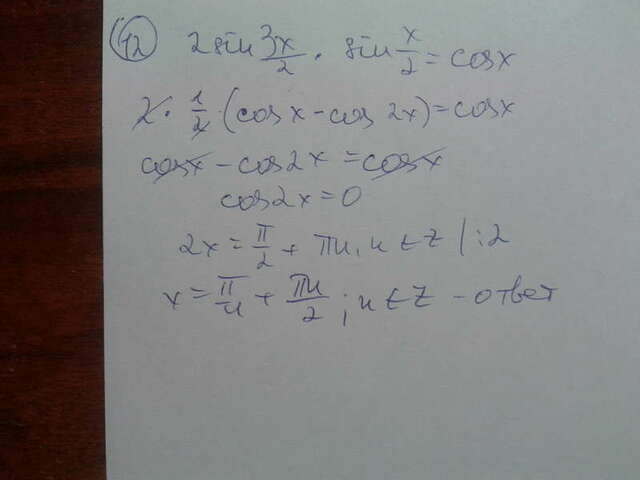 12 2sin 3x/2 · sin x/2 = cosx
2 · 1/2 · (cos x - cos 2x) = cosx
cosx - cos2x = cosx
cos2x = 0
2x = π/2 + πn, n ∈ Z | :2
x = π/4 + πn/2 ; n ∈ Z - ответ